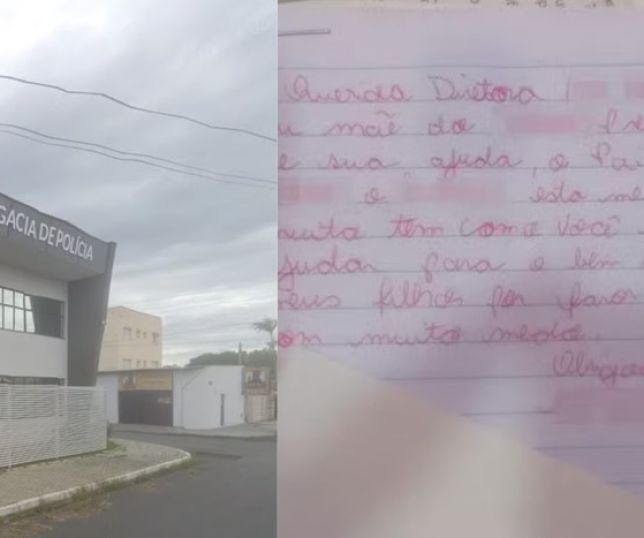 GACIA DE POLÍCIA
Querida Diretora
u mãe do
e sua ajuda, o Pai
o esta me
muito tem como Você
judar para o bem
eus filhos por favor
om muito medo.
Obrigad